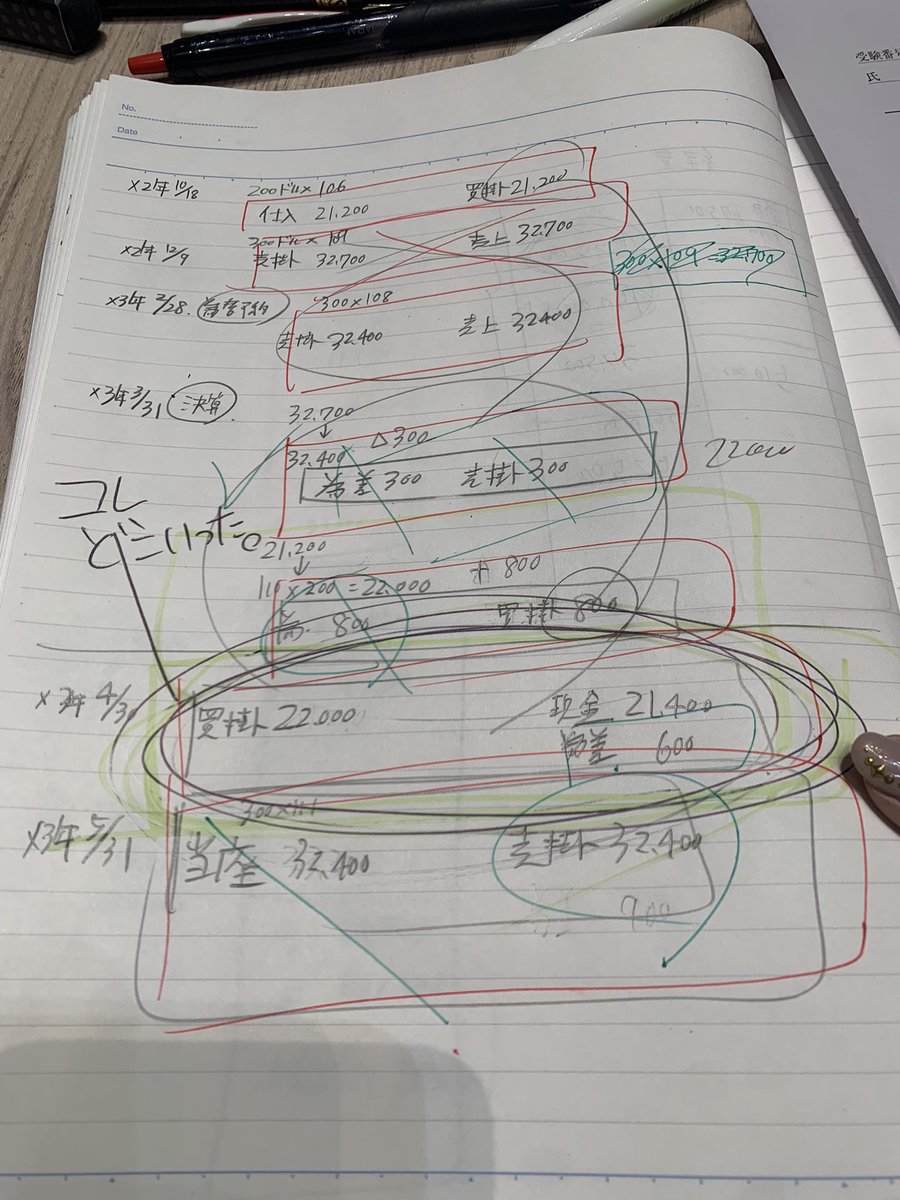 受験番号
氏
No.
Date
×2年10/18 200ドル×106
仕入 21,200 買掛 21,200
300ドル×109
×2年12/9 売掛 32,700 売上 32,700
300×109=32,700
×3年2/28. 為替予約 300×108
売掛 32,400 売上 32,400
×3年3/31 決算
32,700
↓
32,400 △300
為差 300 売掛 300
22000
コレ
どこいった。
21,200
↓
110×200=22,000 +800
為. 800 買掛 800
×3年4/30 買掛 22,000 現金 21,400
為差 600
×3年5/31
当座 32,400 売掛 32,400